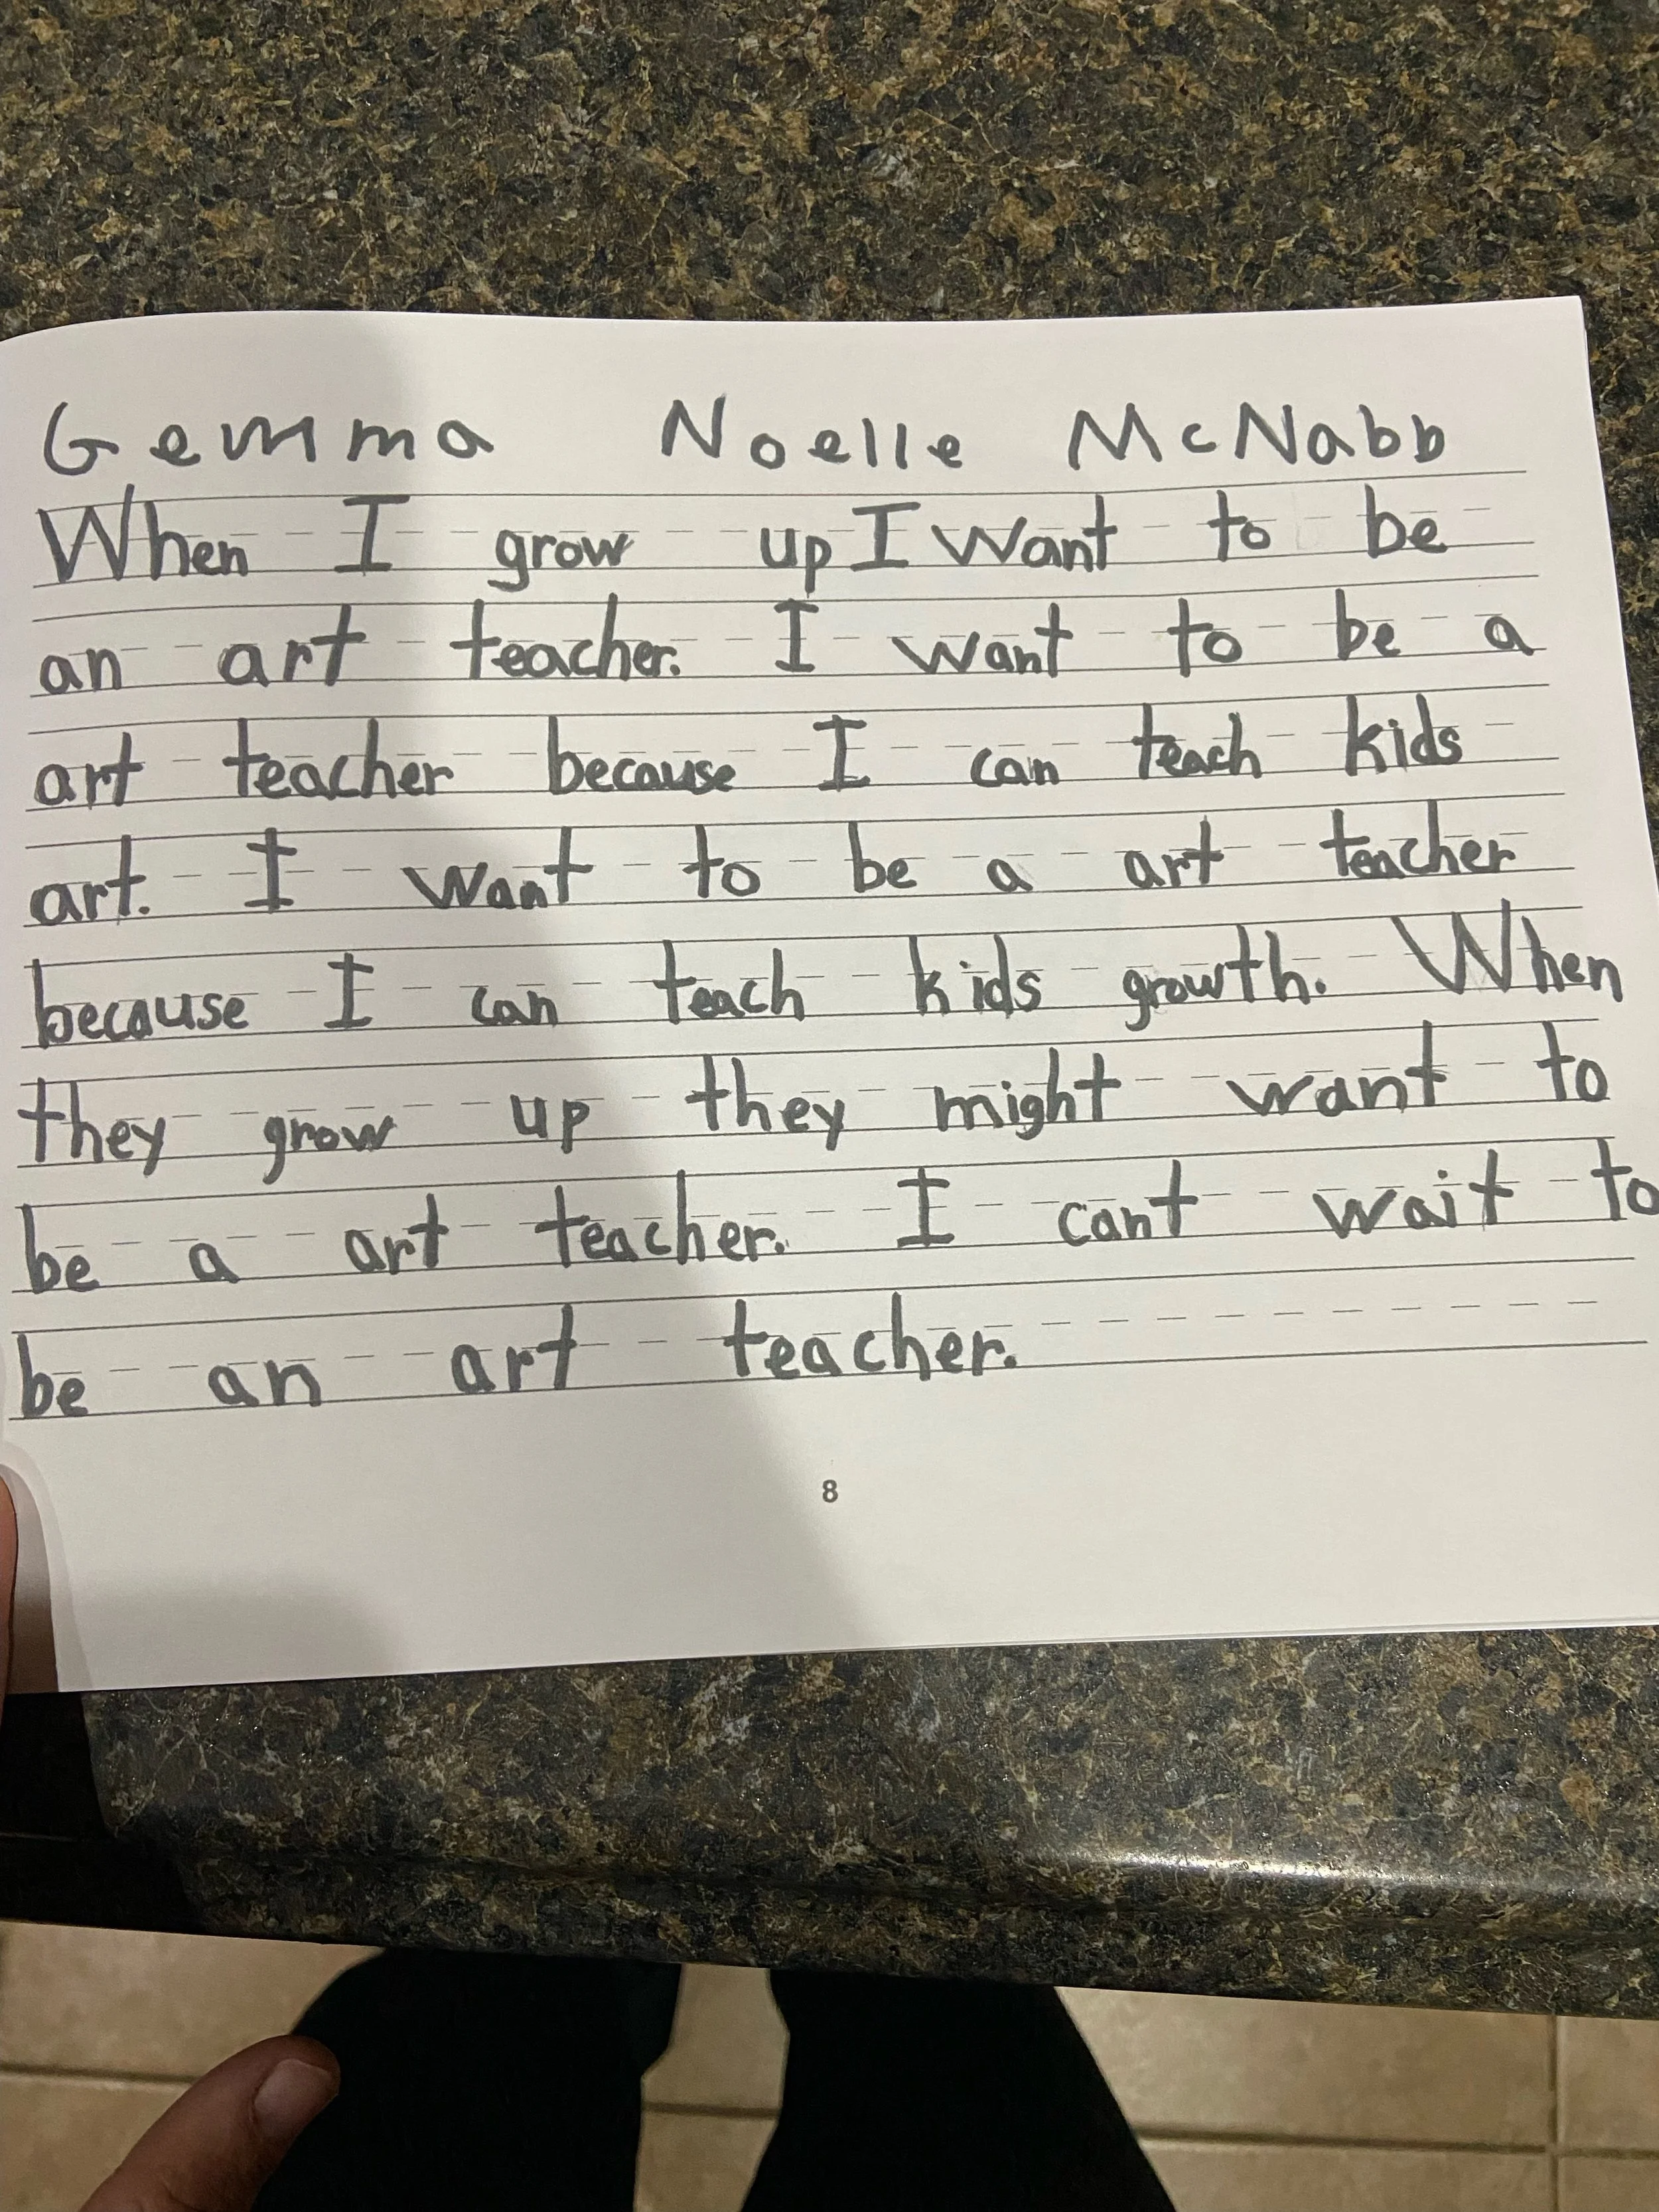 Gemma Noelle McNabb
When I grow up I want to be
an art teacher. I want to be a
art teacher because I can teach kids
art. I want to be a art teacher
because I can teach kids growth. When
they grow up they might want to
be a art teacher. I cant wait to
be an art teacher.
8